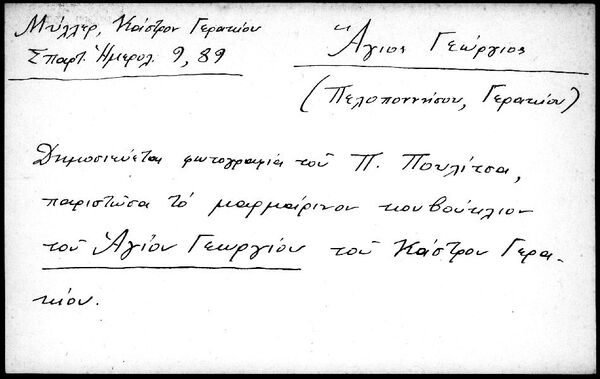 Μύλλερ, Κάστρον Γερακίου
Σπαρτ. Ἡμερολ. 9, 89
Ἅγιος Γεώργιος
(Πελοποννήσου, Γερακίου)
Δημοσιεύεται φωτογραφία τοῦ Π. Πουλίτσα,
παριστῶσα τό μαρμάρινον κουβούκλιον
τοῦ Ἁγίου Γεωργίου τοῦ Κάστρου Γερα-
κίου.